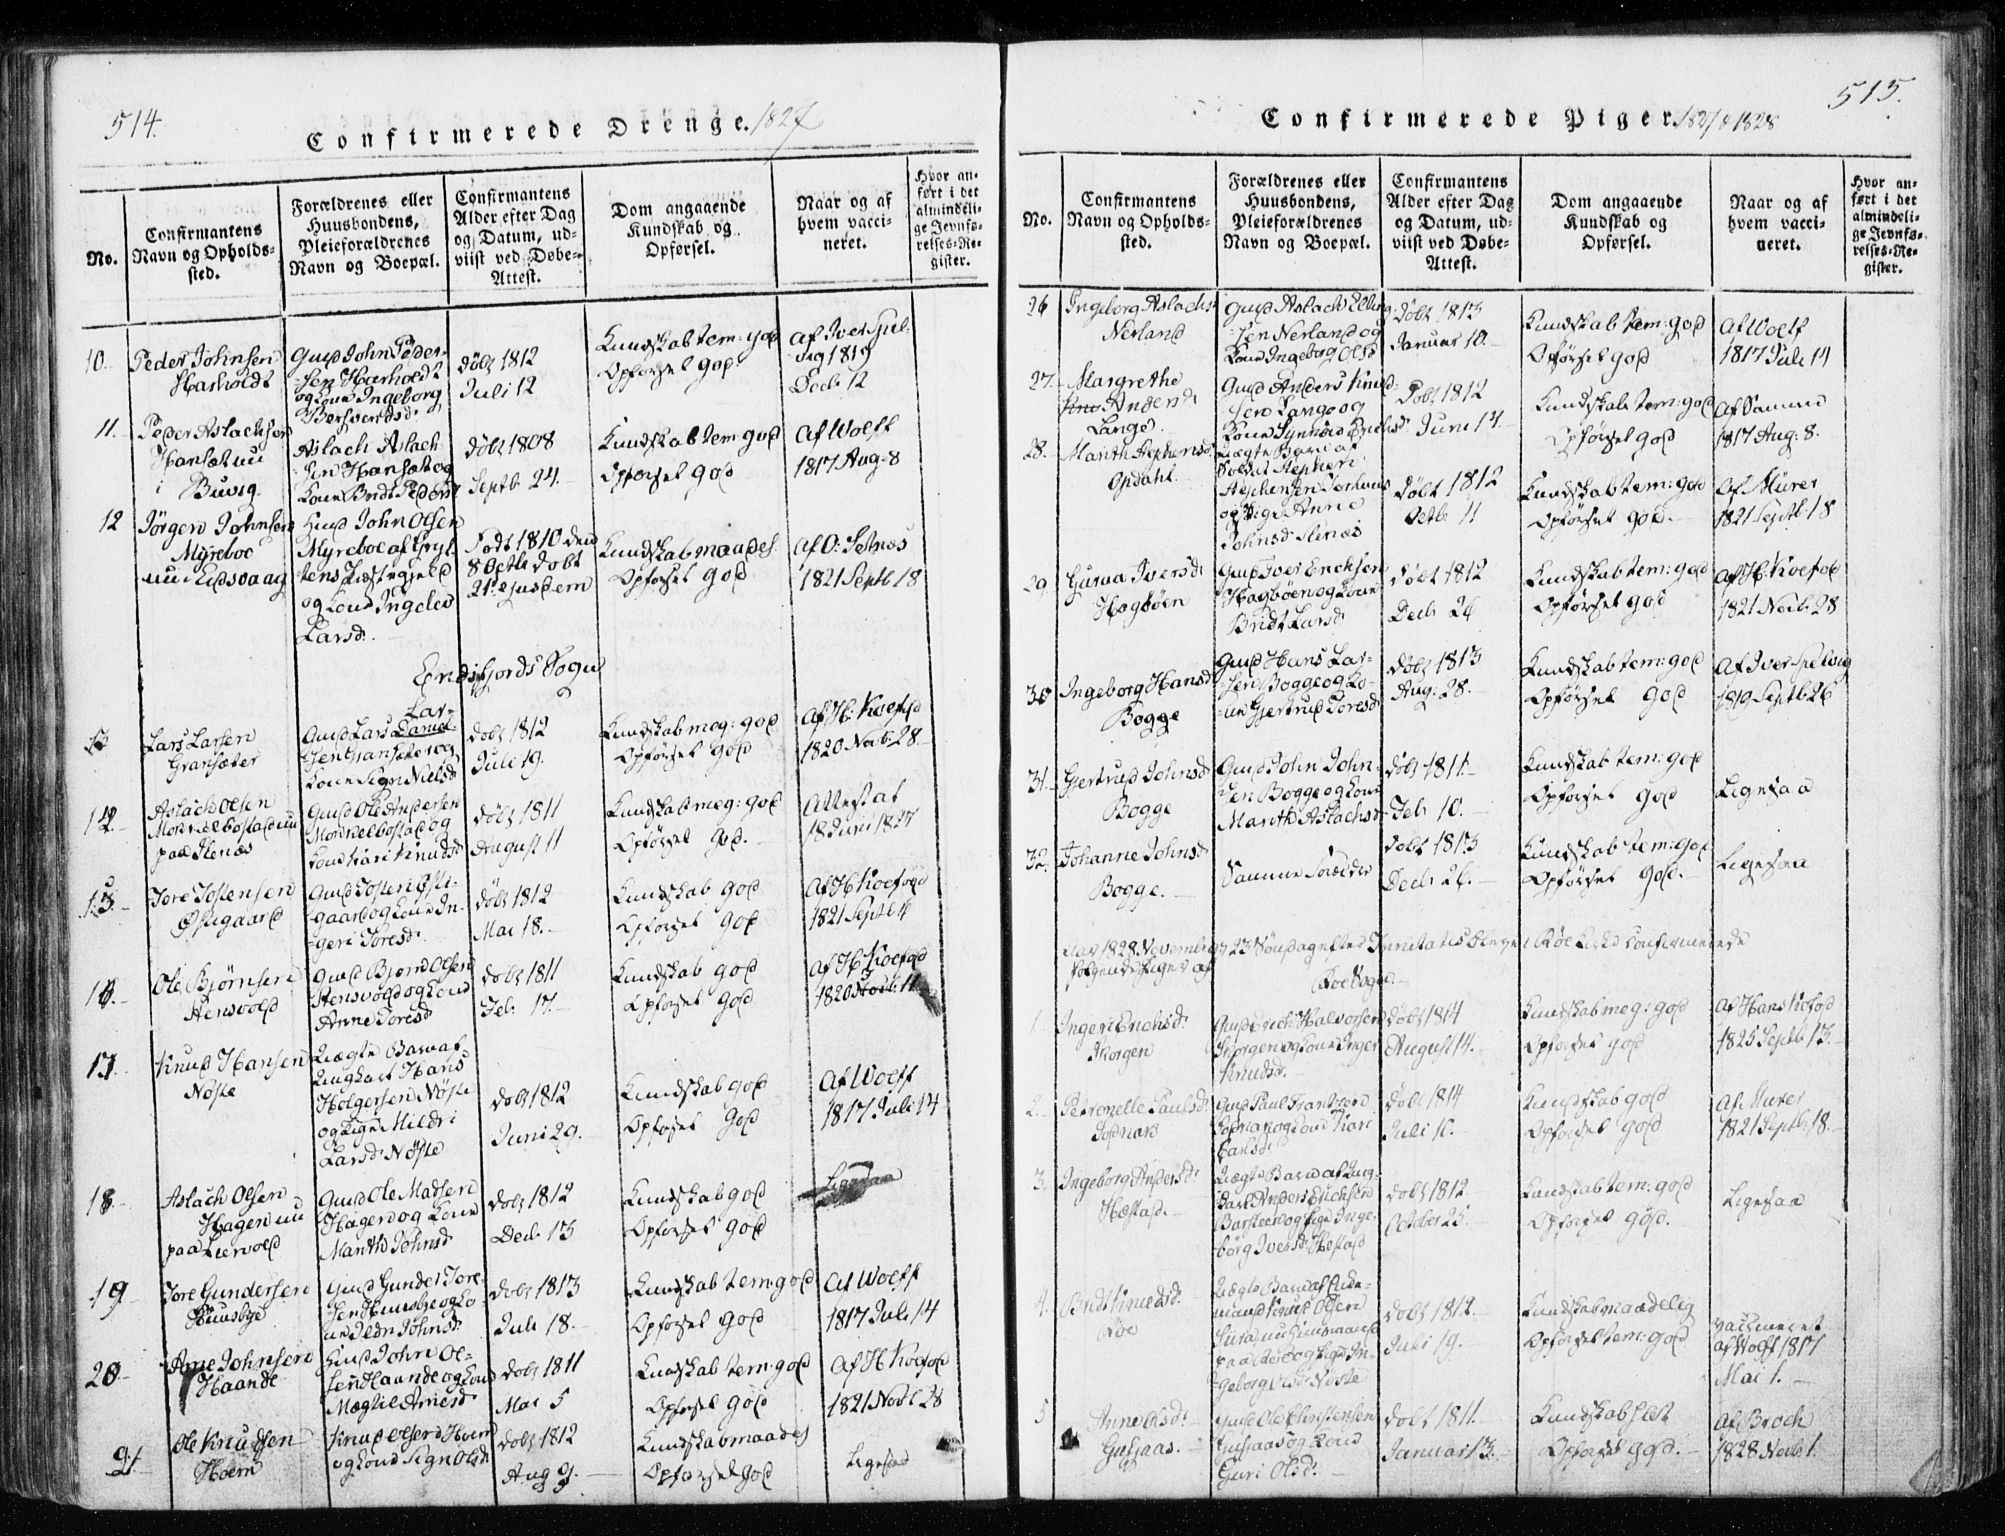 514.
Confirmerede Drenge. 1827
No.
Confirmantens
Navn og Opholds-
sted.
Forældrenes eller
Huusbondens,
Pleieforældrenes
Navn og Boepæl.
Confirmantens
Alder efter Dag
og Datum, ud-
viist ved Døbe-
Attest.
Dom angaaende
Kundskab og
Opførsel.
Naar og af
hvem vacci-
neret.
Hvor an-
ført i det
almindeli-
ge Jevnfø-
relses-Re-
gister.
10. Peder Johnsen
Harholdt
Gmd John Peder-
sen Harholdt
og Kone Ingeborg
døbt 1812
Juli 12
Kundskab tem: god
Opførsel god
af Iver
1819
Decb 12
11. Peder Aslachsen
i Buvig
Aslach Aslach-
og
Kone Brit Pedersd
døbt 1808
Septb 24
Kundskab tem: god
Opførsel god
Af Wolff
1817 Aug: 8
12 Jørgen Johnsen
Myreboe
nu Eidsvaag
Gmd John Olsen
Myreboe af
og Kone Ingelev
Larsd.
Født 1810 den
8 Octb døbt
21 ejusdem
Kundskab maadel
Opførsel god
af O: Setnæs
1821 Septb 18
Sogn
13 Lars Larsen
Gransæter
Gmd Lars
Lar-
sen Gransæter og
Kone Sign Nielsd
døbt 1812
Juli 19.
Kundskab meg: god
Opførsel god
Af H: Koefod
1820 Novb: 28.
14 Aslach Olsen
nu
paa
Gmd Ole Andersen
og
Kone Kari Knudsd
døbt 1811
August 11
Kundskab meg: god
Opførsel god.
Attest af
18 Juni 1827
15. Tore Jostensen
Gmd Josten
og Kone In-
geri Toresd
døbt 1812
Mai 18.
Kundskab god
Opførsel god
Af H Koefod
1821 Septb 4
16. Ole Bjørnsen
Stensvold
Gmd Bjørn Olsen
Stensvold og Kone
Anne Toresd
døbt 1811
Feb: 17.
Kundskab god
Opførsel god
af H: Koefod
1820 Novb: 11
17. Knud Hansen
Nøste
Uægte Barn af
Ungkarl Hans
Holgersen Nøste
og Pige Mildri
Larsd Nøste
døbt 1812
Juni 29.
Kundskab god
Opførsel God
Af Wolff
1817 Juli 14
18. Aslach Olsen
Hagen nu
paa Lievold
Gmd Ole Madsen
Hagen og Kone
Marith Johnsd
døbt 1812
Decb 13
Kundskab god
Opførsel god
Ligesaa
19 Tore Gundersen
Huusbye
Gmd Gunder Tore-
sen Huusbye og Ko-
ne Ildri Johnsd
døbt 1813
Juli 18.
Kundskab tem: god
Opførsel god
Af Wolff
1817 Juli 14
20. Arne Johnsen
Haande
Gmd John Ol-
sen Haande og Kone
Magtil Arnesd
døbt 1811
Mai 5
Kundskab tem: god
Opførsel god
Af H Koefod
1821 Novb 28
21 Ole Knudsen
Hoem
Knud Olsen Hoem
og Kone Sign Olsd
døbt 1812
Aug 9.
Kundskab maadel
Opførsel god
Ligesaa
515.
Confirmerede Piger. 1827 & 1828
No.
Confirmantens
Navn og Opholds-
sted.
Forældrenes eller
Huusbondens,
Pleieforældrenes
Navn og Boepæl.
Confirmantens
Alder efter Dag
og Datum, ud-
viist ved Døbe-
Attest.
Dom angaaende
Kundskab og
Opførsel.
Naar og af
hvem vacci-
neret.
Hvor an-
ført i det
almindeli-
ge Jevnfø-
relses-Re-
gister.
26 Ingeborg Aslachs
Nerland
Gmd Aslach Elling-
sen Nerland og
Kone Ingeborg Olsd
døbt 1813
Januar 10.
Kundskab tem: god
Opførsel god
Af Wolff
1817 Juli 14
27. Margrethe
Andersd
Lange.
Gmd Anders Knud-
sen Lange og
Kone Synnøve
Døbt 1812
Juni 14.
Kundskab tem: god
Opførsel god
Af
1817 Aug: 8.
28. Marith Stephensd
Opdahl.
Uægte Barn af
Stephen
Stephensen
og Pige Anne
Johnsd
døbt 1812
Octb 11
Kundskab tem: god
Opførsel god.
Af Mürer
1821 Septb 18
29. Guroa Iversd
Hagbøen
Gmd Iver Erichsen
Hagbøen og Kone
Brit Larsd
døbt 1812
Decb 26
Kundskab tem: god
Opførsel god
af H: Koefod
1821 Novb 28
30 Ingeborg Hansd
Bogge
Gmd Hans Lar-
sen Bogge og Ko-
ne Gjertrud Toresd
døbt 1813
Aug: 28.
Kundskab tem: god
Opførsel god
Af Iver
1819 Septb 26
31. Gjertrud Johnsd
Bogge
Gmd John John-
sen Bogge og Kone
Marith Aslachsd
døbt 1811.
Feb 10.
Kundskab tem: god
Opførsel god
Ligesaa
32. Johanne Johnsd
Bogge.
Samme Forældre
døbt 1813
Decb 26.
Kundskab tem: god
Opførsel god.
Ligesaa
Aar 1828 November 23 Søndag efter Trinitatis blev i Røe Kirke confirmerede
følgende Piger af
Røe Sogn.
1. Ingeri Erichsd.
Skorgen
Gmd Erich Halvorsen
Skorgen og Kone Inger
Knudsd.
døbt 1814
August 14.
Kundskab meg: god
Opførsel god
Af Hans Koefod
1825 Septb 13.
2. Petronelle Paulsd.
Gmd Paul Frantzen
og Kone Kari
døbt 1814
Juli 10.
Kundskab god
Opførsel god
Af Mürer
1821 Septb 18.
3. Ingeborg Andersd.
Uægte Barn af Ung-
karl Anders Erichsen
og Pige Inge-
borg Iversd
døbt 1812.
October 25.
Kundskab tem: god
Opførsel god.
Ligesaa
4. Brit Knudsd.
Røe
Uægte Barn af Enke-
mand Knud Olsen
nu Huusmand
paa Røe og Pige In-
geborg Olsd Nøste
døbt 1812.
Juli 19.
Kundskab maadelig
Opførsel tem: god
vaccineret
af Wolff 1817
Mai 1.
5 Anne Olsd.
Gusjaas.
Gmd Ole Christensen
Gusjaas og Kone
Guri Olsd.
døbt 1811.
Januar 13.
Kundskab slet
Opførsel god.
Af Broch
1828 Novb 1.